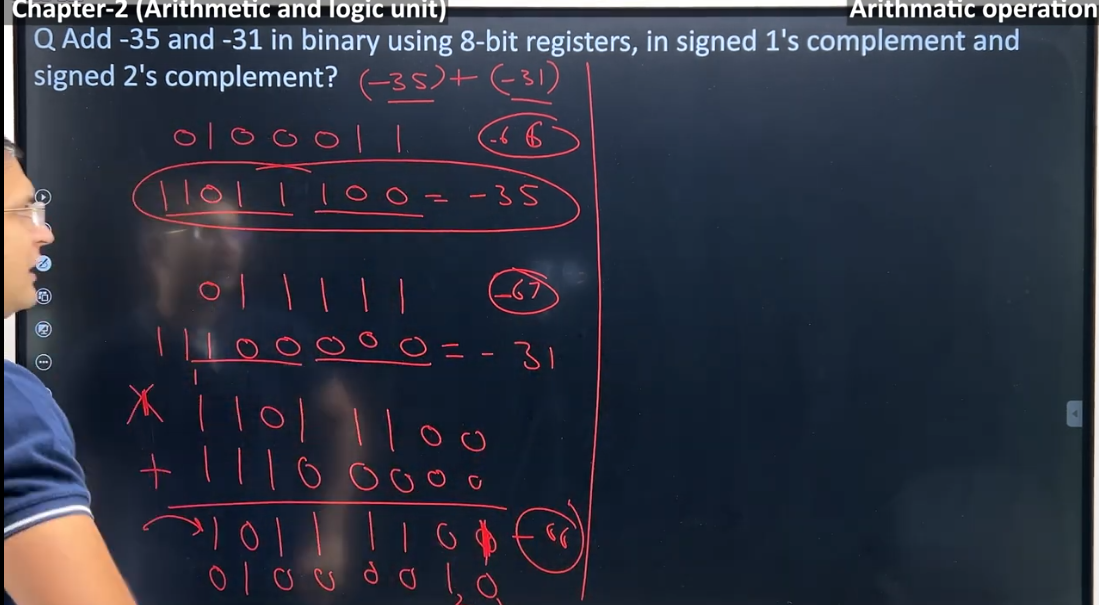 Chapter-2 (Arithmetic and logic unit)
Arithmatic operation
Q Add -35 and -31 in binary using 8-bit registers, in signed 1's complement and
signed 2's complement? (-35)+ (-31)
0100011 -66
11011100 = -35
011111 -67
11100000 = - 31
1
1101 1100
+ 1110 0000
1011 110
0100001,0